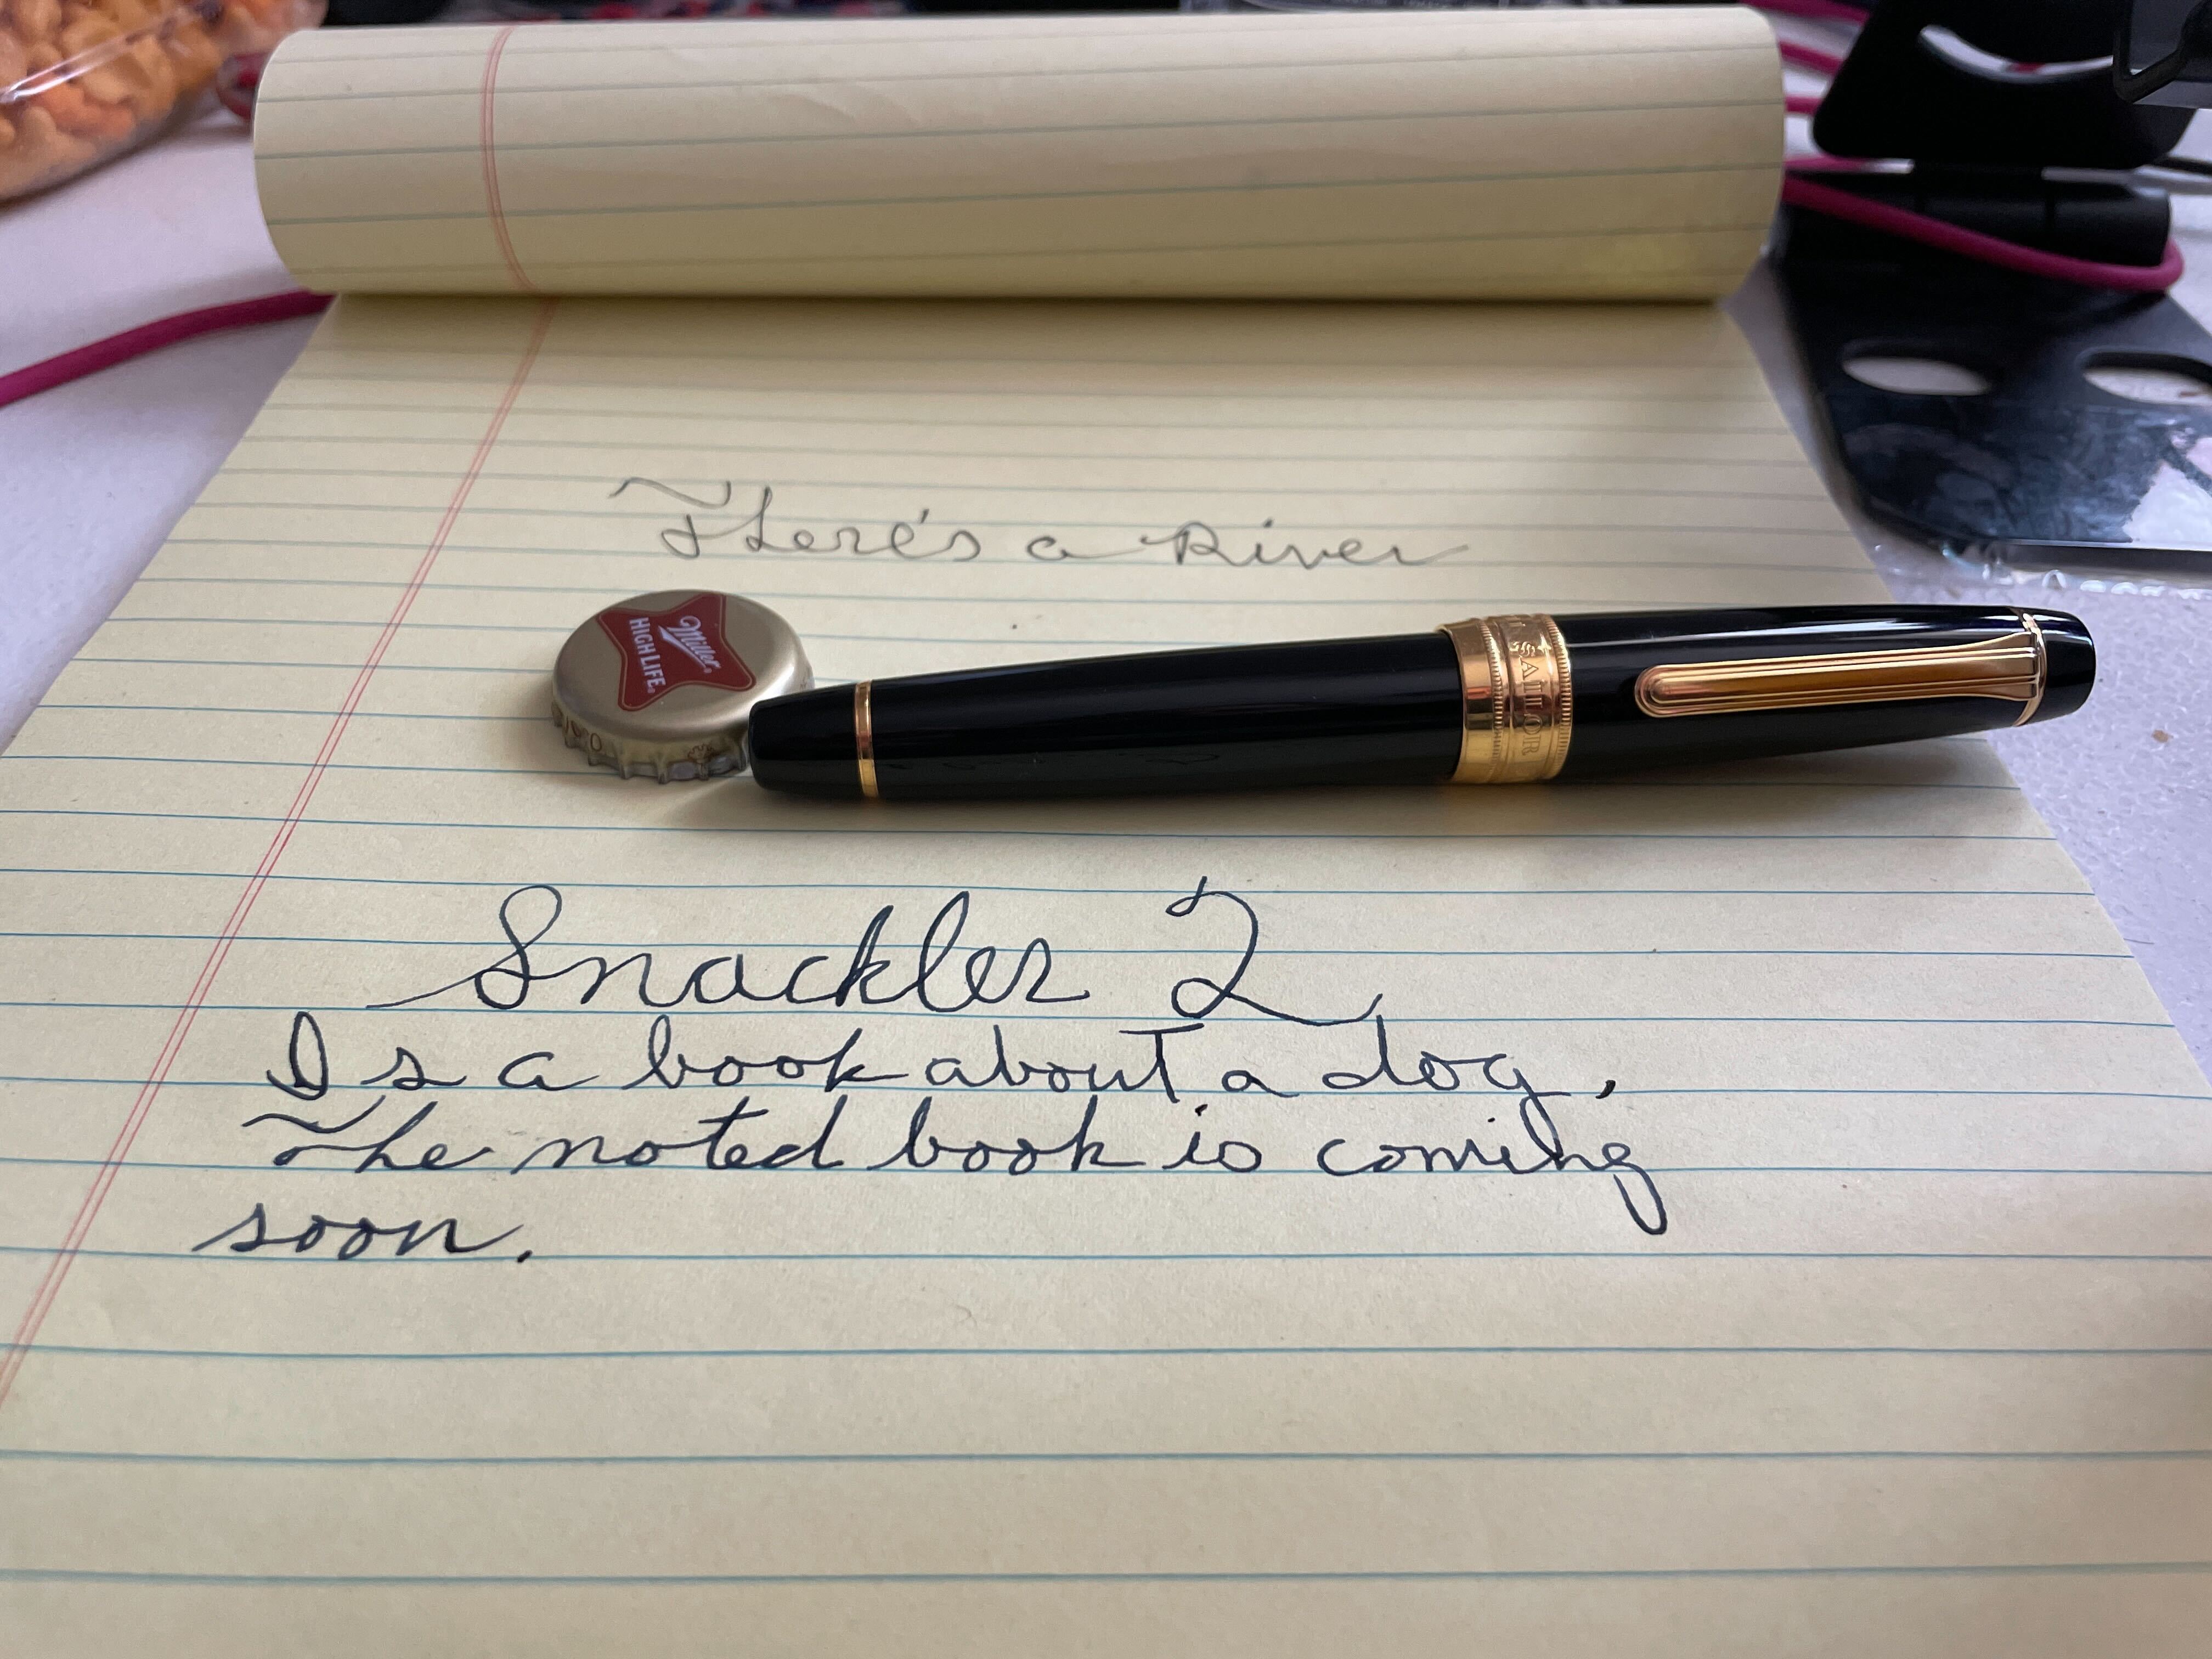 There's a River
Miller
HIGH LIFE
SAILOR
Snackler 2
Is a book about a dog.
The noted book is coming
soon.